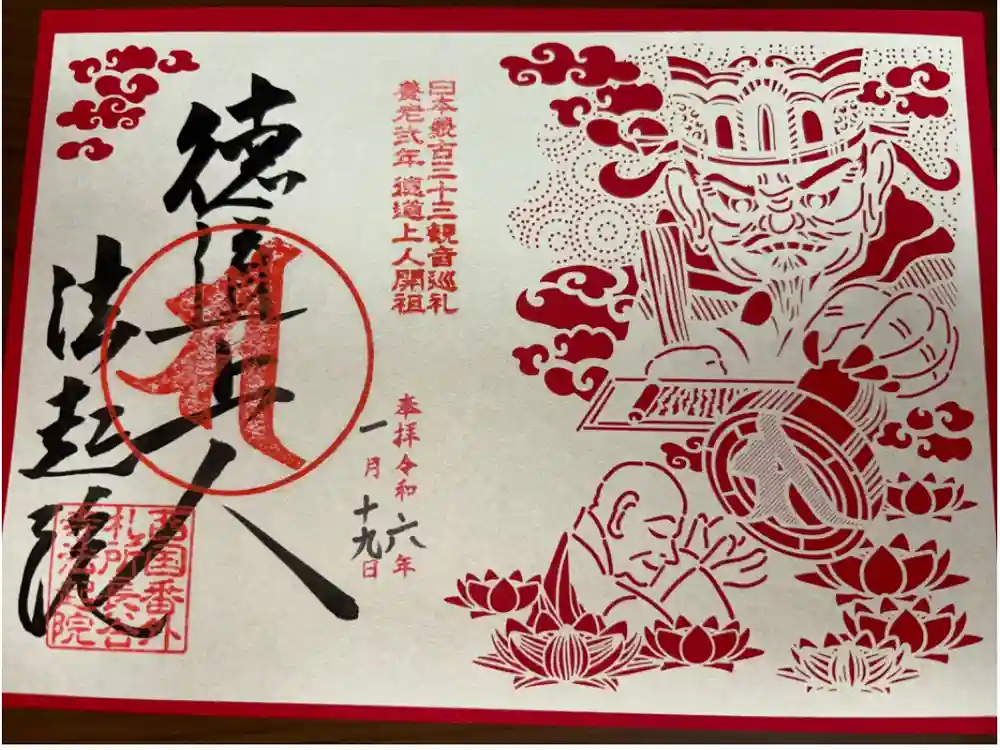 日本最古三十三観音巡礼
養老弐年 徳道上人開祖
奉拝 令和六年
一月十九日
徳道上人
法起院
西国番外
札所長谷
法起院